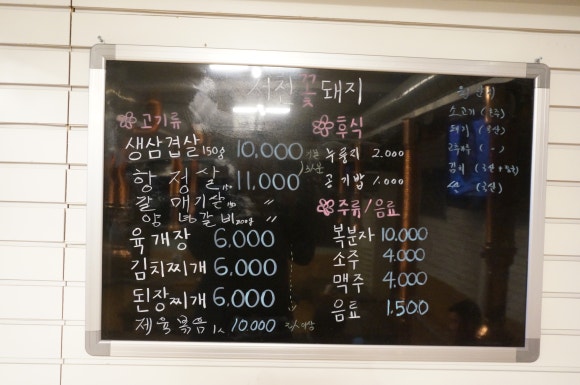 서진 꽃 돼지
고기류
생삼겹살 150g 10,000
항정살 11,000
갈매기살 〃
양념갈비 200g 〃
육개장 6,000
김치찌개 6,000
된장찌개 6,000
제육볶음 10,000
후식
누룽지 2.000
공기밥 1.000
주류/음료
복분자 10.000
소주 4.000
맥주 4.000
음료 1.500
원산지
소고기 (호주)
돼지 (국산)
김치
쌀 (국산)